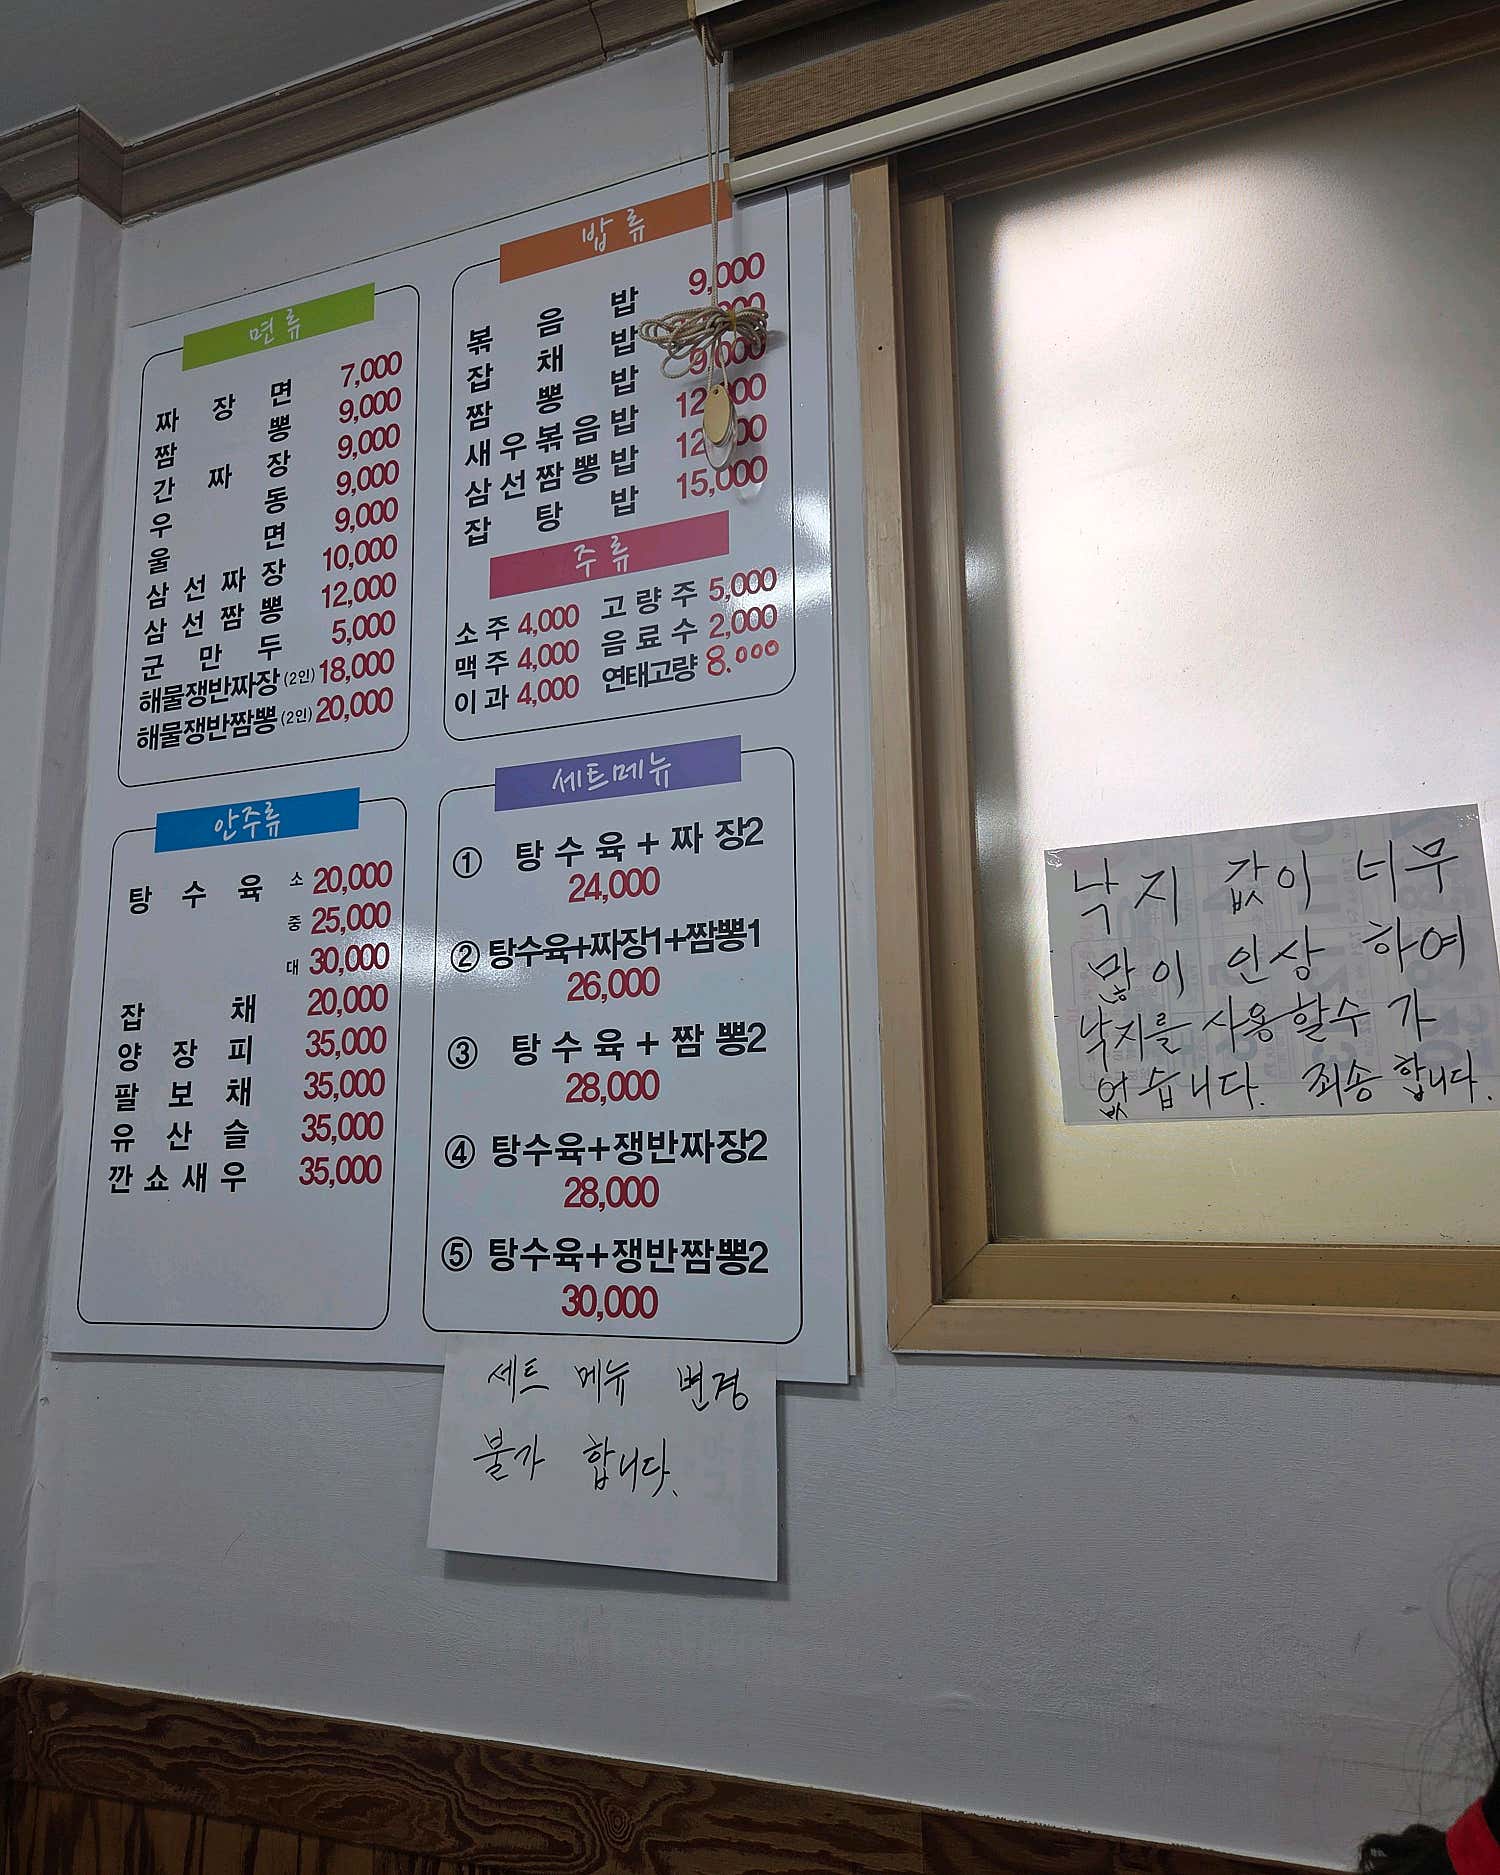 면류
짜장면 7,000
짬뽕 9,000
간짜장 9,000
우동 9,000
울면 9,000
삼선짜장 10,000
삼선짬뽕 12,000
군만두 5,000
해물쟁반짜장(2인) 18,000
해물쟁반짬뽕(2인) 20,000
밥류
볶음밥 9,000
잡채밥
짬뽕밥 9,000
새우볶음밥
삼선짬뽕밥
잡탕밥 15,000
주류
소주 4,000 고량주 5,000
맥주 4,000 음료수 2,000
이과 4,000 연태고량 8.000
안주류
탕수육 소 20,000
중 25,000
대 30,000
잡채 20,000
양장피 35,000
팔보채 35,000
유산슬 35,000
깐쇼새우 35,000
세트메뉴
① 탕수육+짜장2
24,000
② 탕수육+짜장1+짬뽕1
26,000
③ 탕수육+짬뽕2
28,000
④ 탕수육+쟁반짜장2
28,000
⑤ 탕수육+쟁반짬뽕2
30,000
세트 메뉴 변경
불가 합니다.
낙지 값이 너무
많이 인상 하여
낙지를 사용할수 가
없습니다. 죄송합니다.